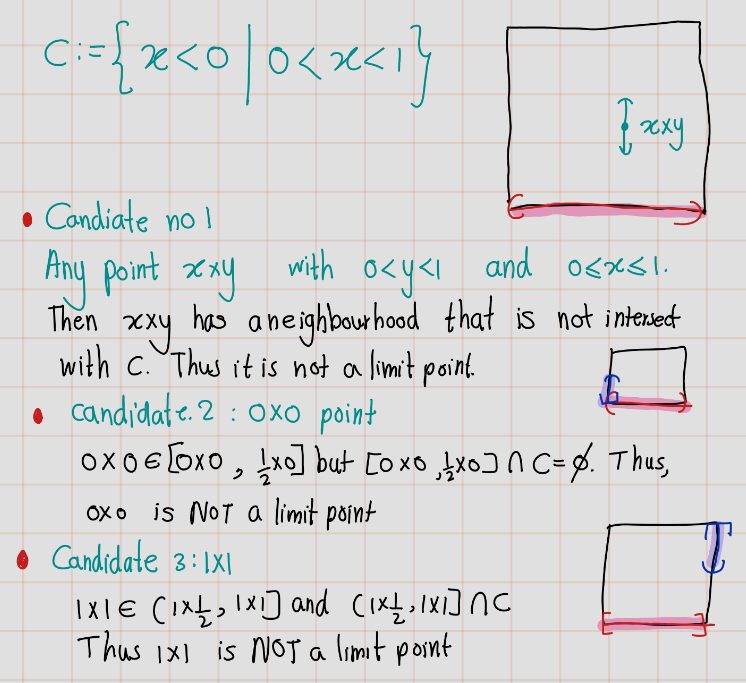 C := { x < 0 | 0 < x < 1 }
x×y
• Candiate no 1
Any point x×y with 0<y<1 and 0⩽x⩽1.
Then x×y has a neighbourhood that is not intersect
with C. Thus it is not a limit point.
• candidate.2 : 0×0 point
0×0 ∈ [0×0 , 1/2×0] but [0×0 , 1/2×0] ∩ C = ∅. Thus,
0×0 is NOT a limit point
• Candidate 3 : 1×1
1×1 ∈ (1×1/2 , 1×1] and (1×1/2 , 1×1] ∩ C
Thus 1×1 is NOT a limit point